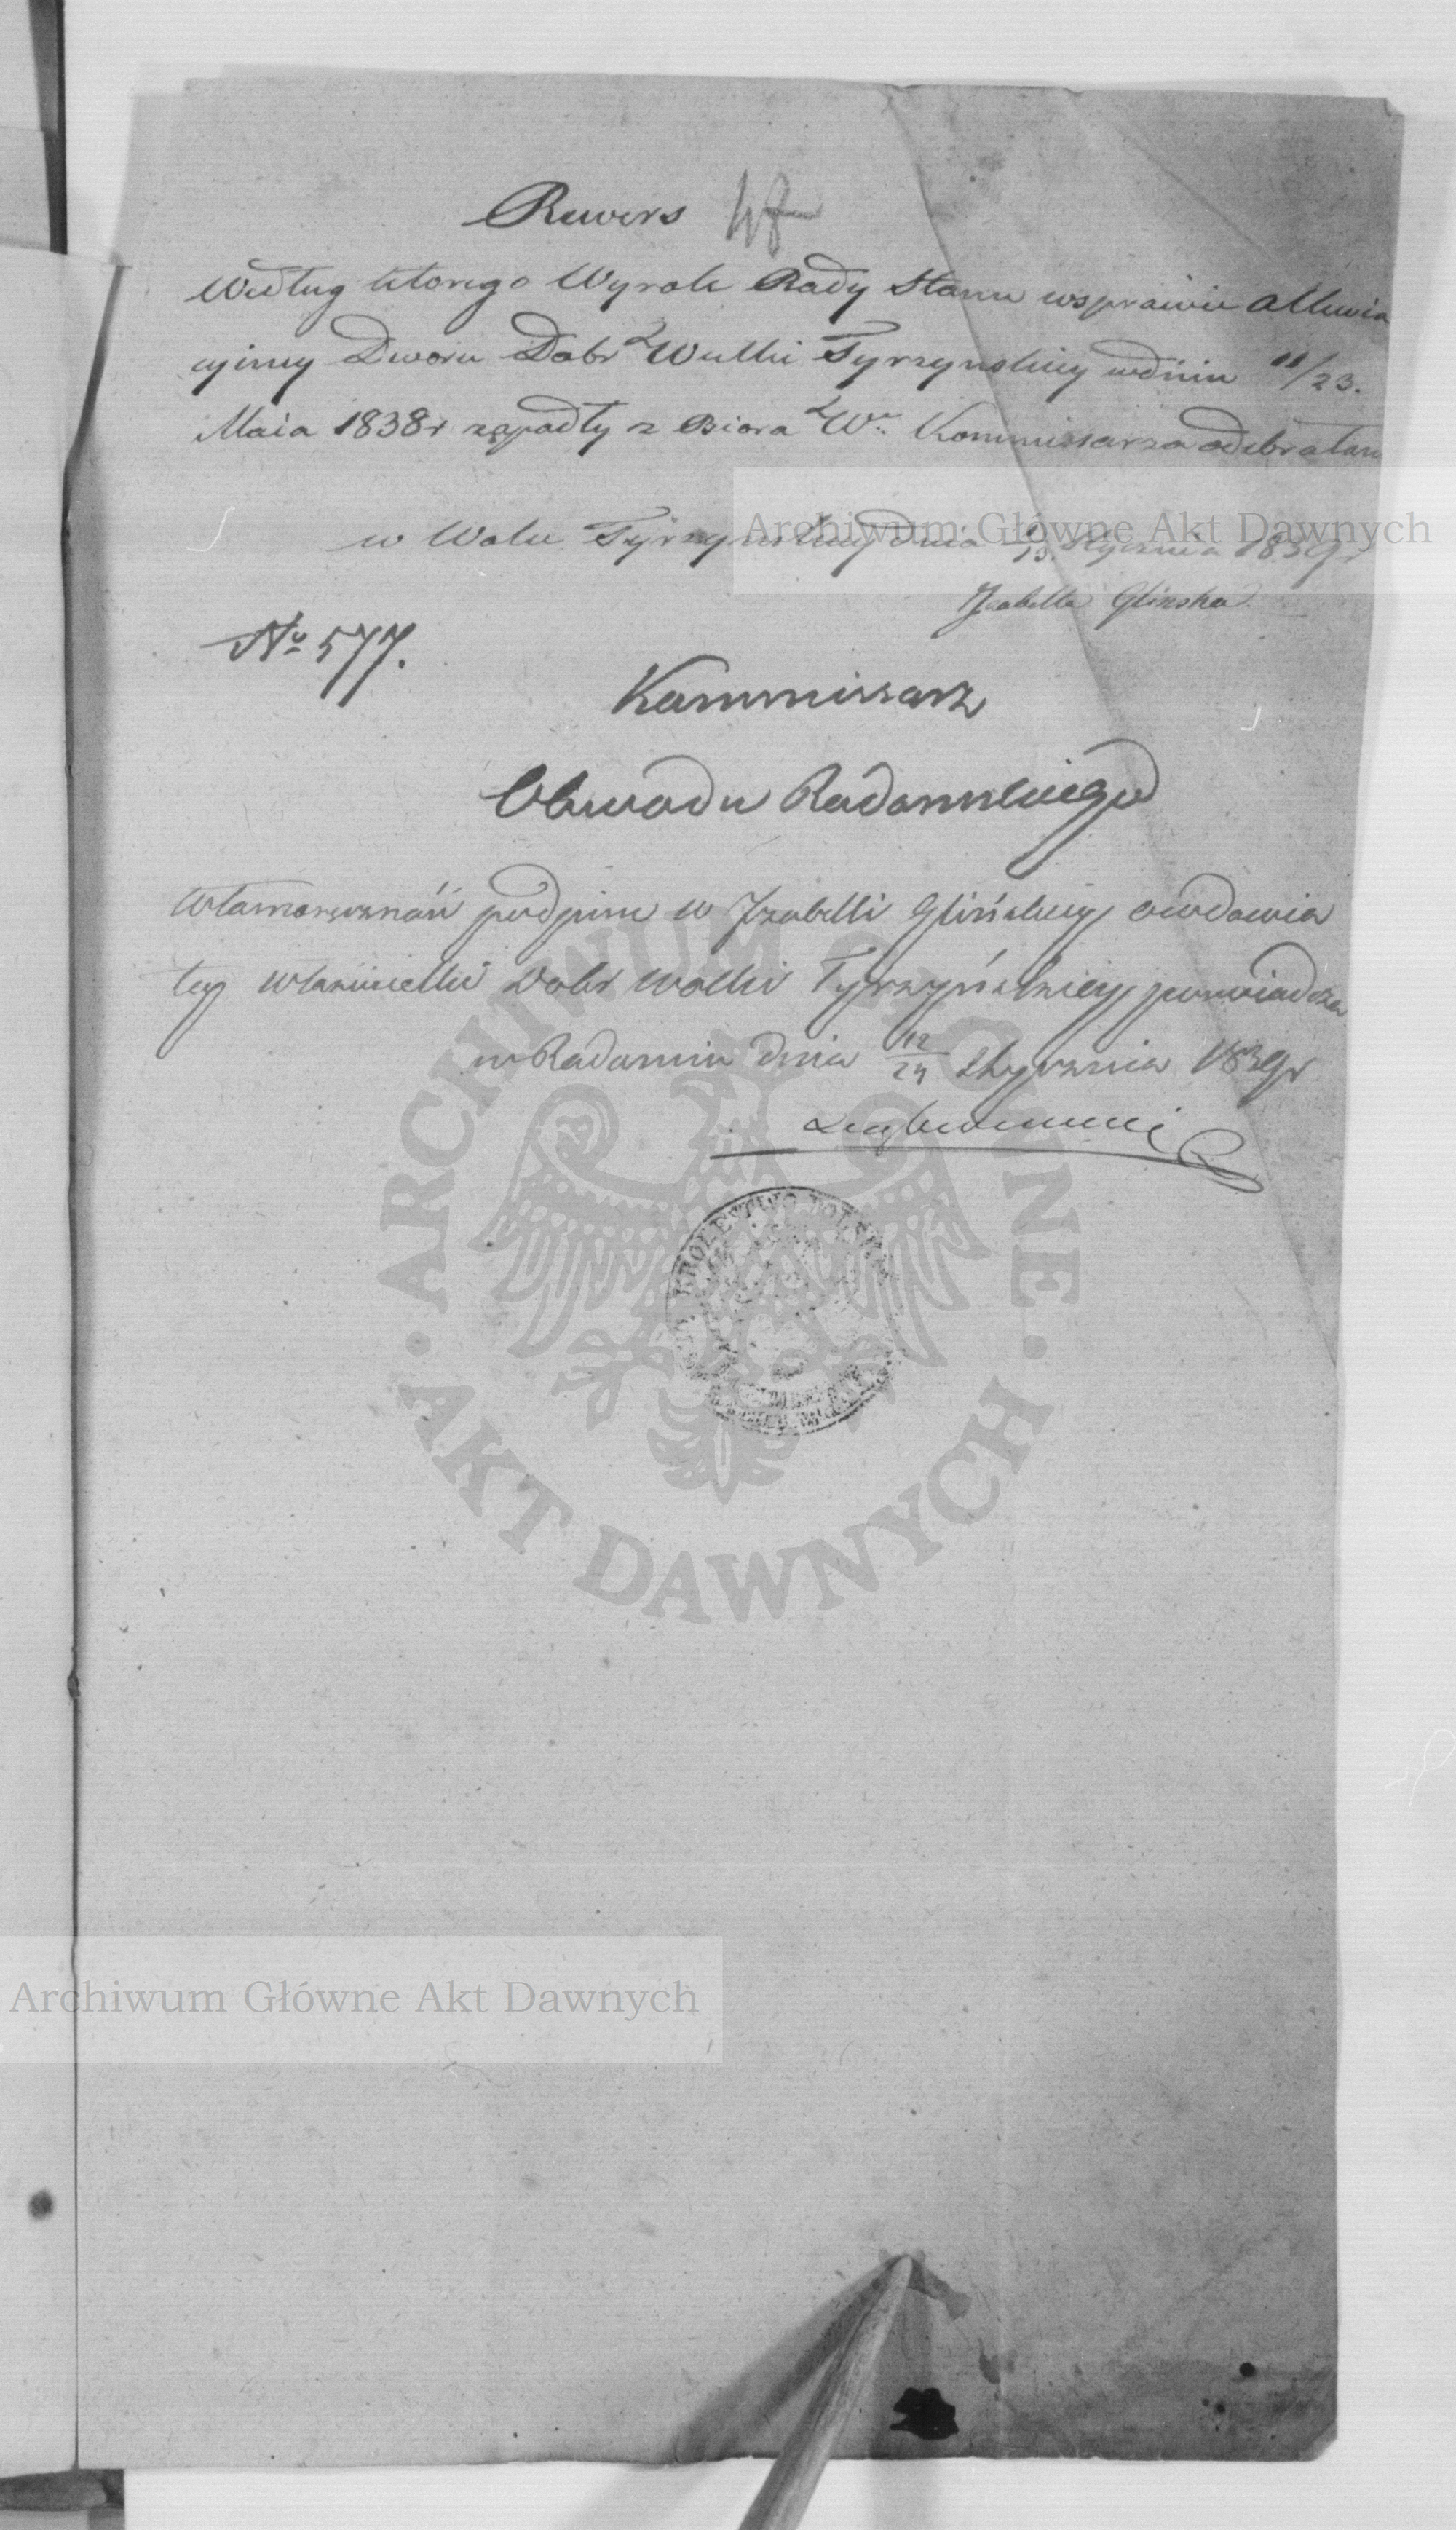 Rewers
Według ktorego Wyrok Rady Stanu wsprawie Alluwia
cyiney Dworu Dobr Wulki Tyrzynskiey wdniu 11/23.
Maia 1838r zapadły z Biora Wo Kommissarza odebrałam
w Wolce Tyrzynskiey dnia /13 Stycznia 1839r
Izabella Glinska
No 577.
Kommissarz
Obwodu Radomskiego
Własnoręczność podpisu W Izabelli Glińskiey owdowia
łey właścicielki Dobr Wolki Tyrzyńskiey poswiadcza
w Radomiu dnia 12/24 Stycznia 1839r
KROLESTWO POLSKIE
Archiwum Główne Akt Dawnych
ARCHIWUM GŁÓWNE · AKT DAWNYCH ·
Archiwum Główne Akt Dawnych